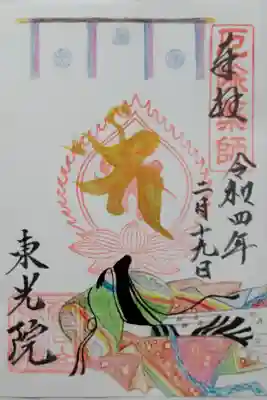 厄除薬師
奉拝
令和四年
二月十九日
東光院